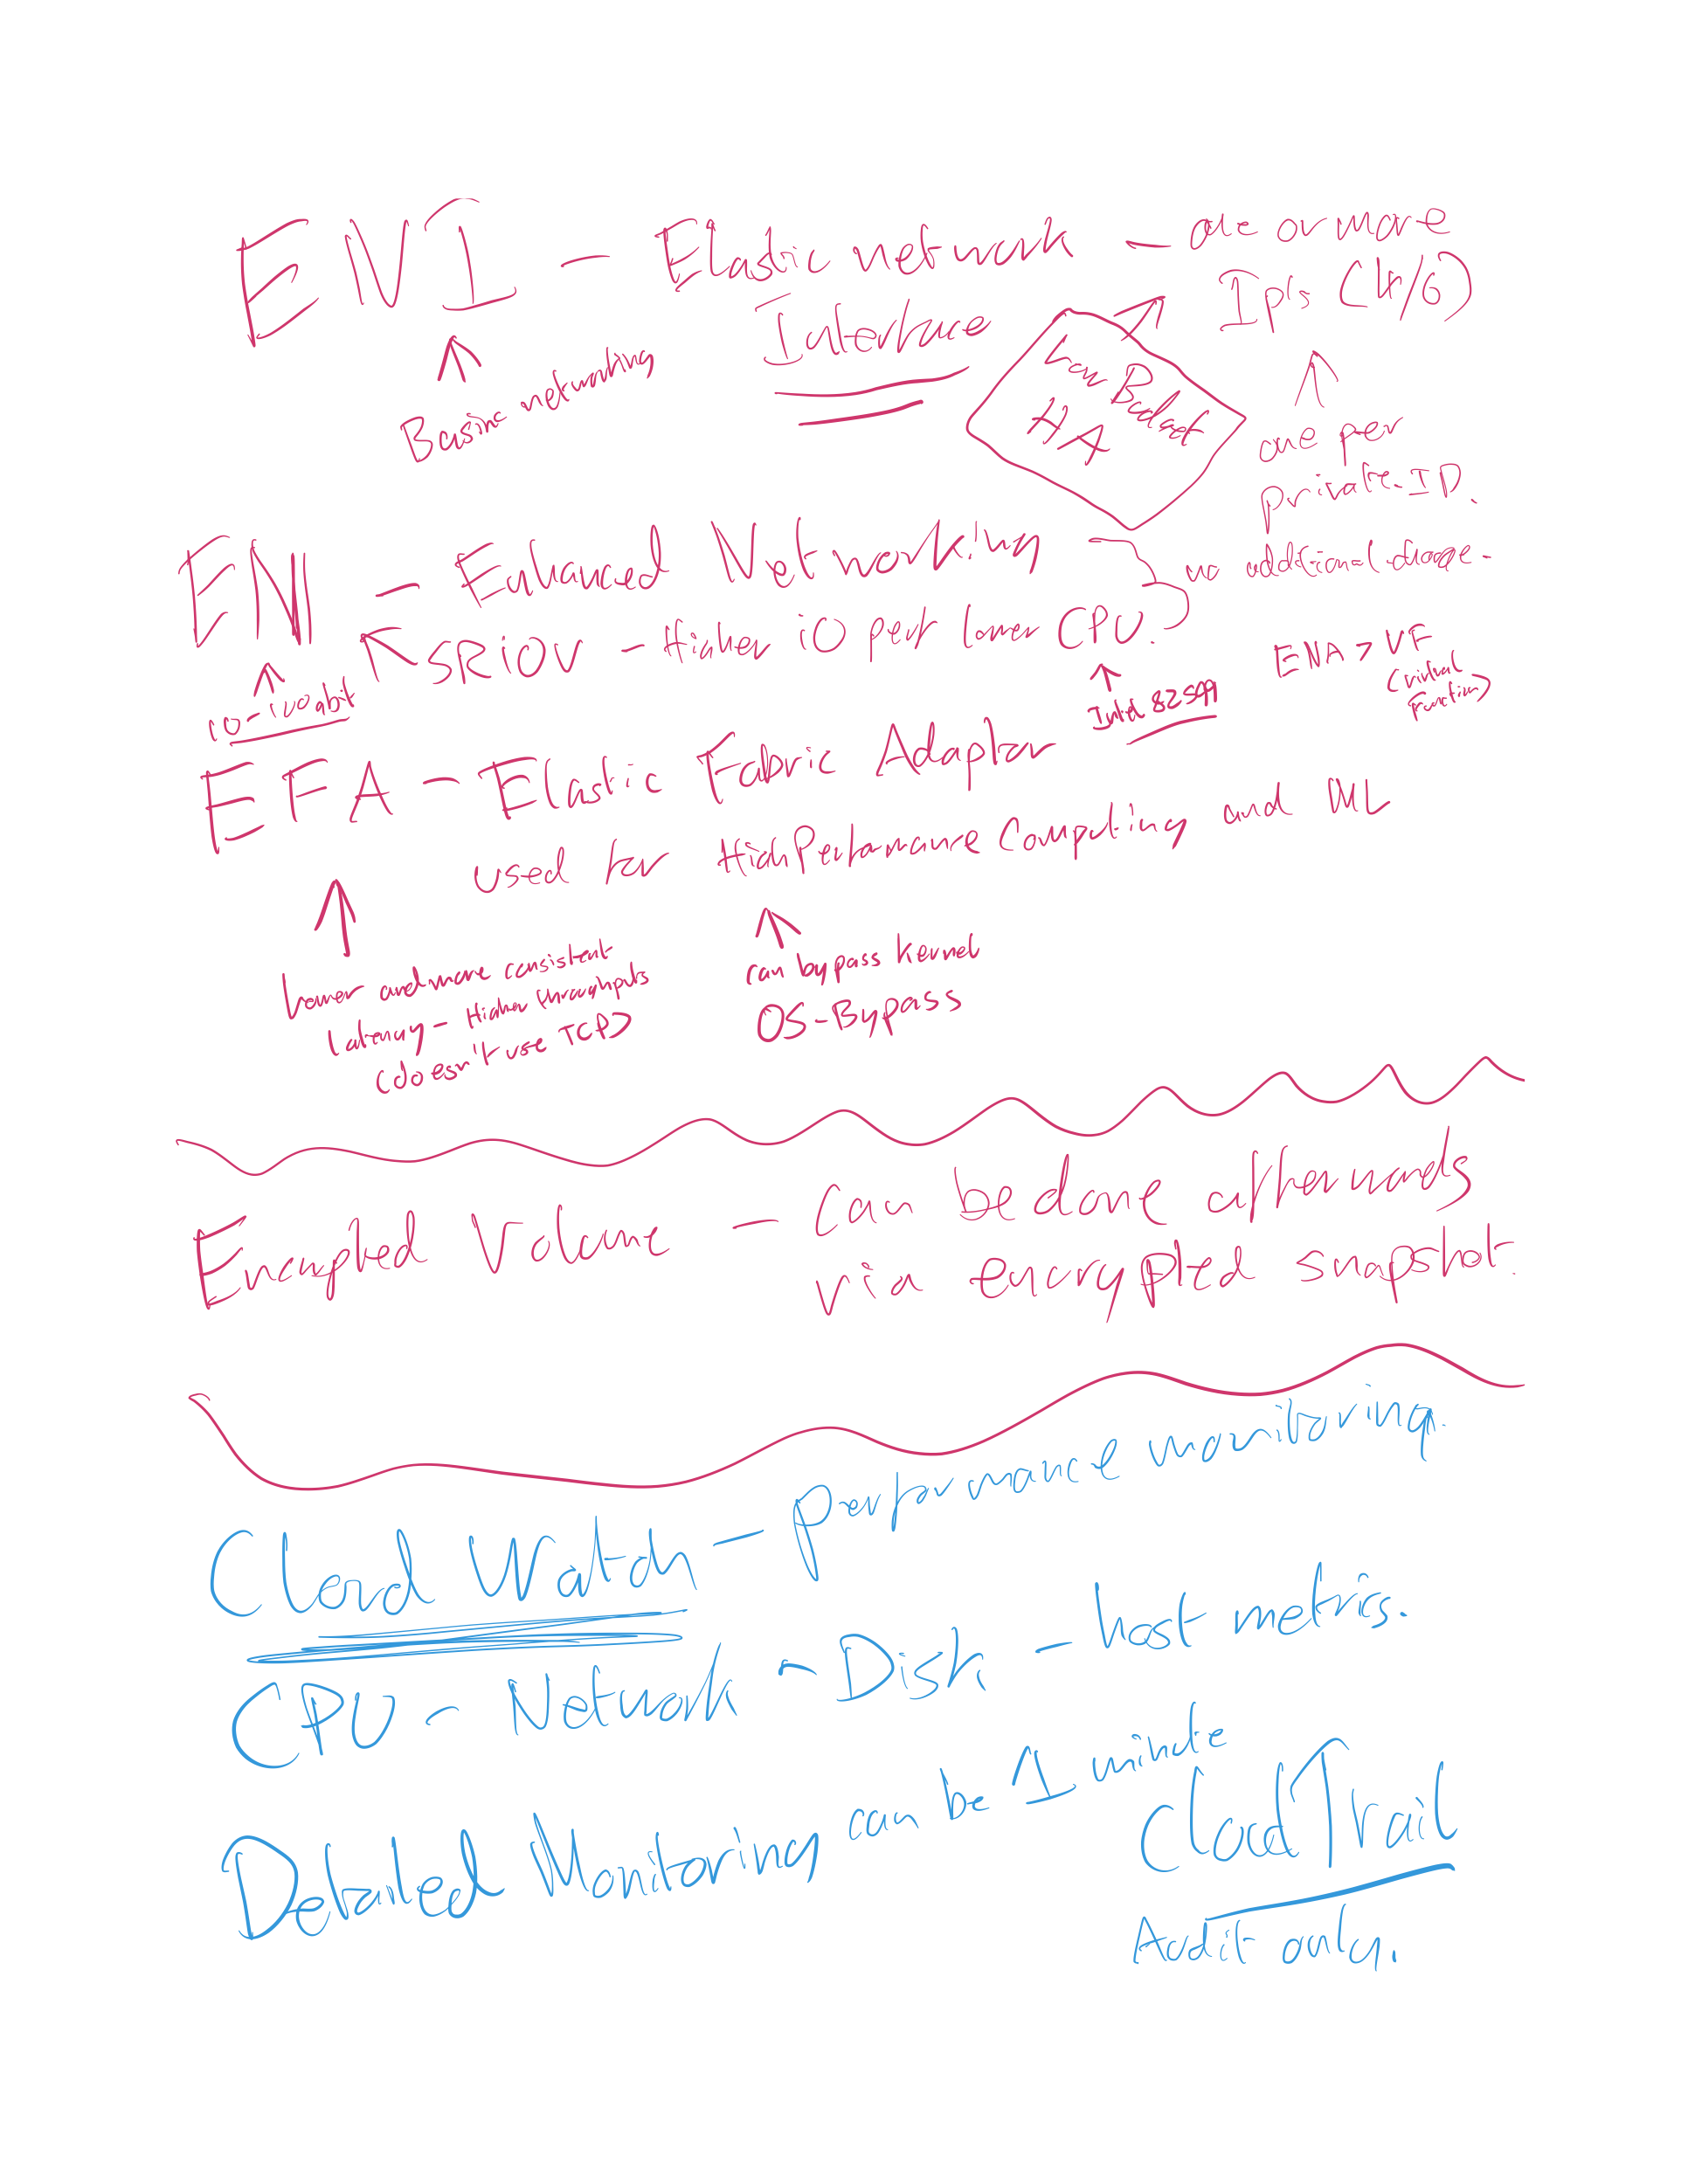 ENI - Elastic network - one or more
Interface
Ips (4/6)
Basic networking
Low Budget
HA
one per
private IP.
EN - Enhanced Networking
no additional charge.
SRIOV - Higher iO perf lower CPU.
10-100 gbit
Intel 82599
ENA > VF
(virtual
function)
EFA - Elastic Fabric Adaptor
used for High Performance Computing and ML
lower and more consistent
latency - Higher throughputs
(doesn't use TCP)
can bypass kernel
OS-Bypass
Encrypted Volume - Can be done afterwards
via encrypted snapshot.
Cloud Watch - performance monitoring.
CPU - Network - Disk - host metrics.
Detailed Monitoring can be 1 minute
CloudTrail
Audit only.